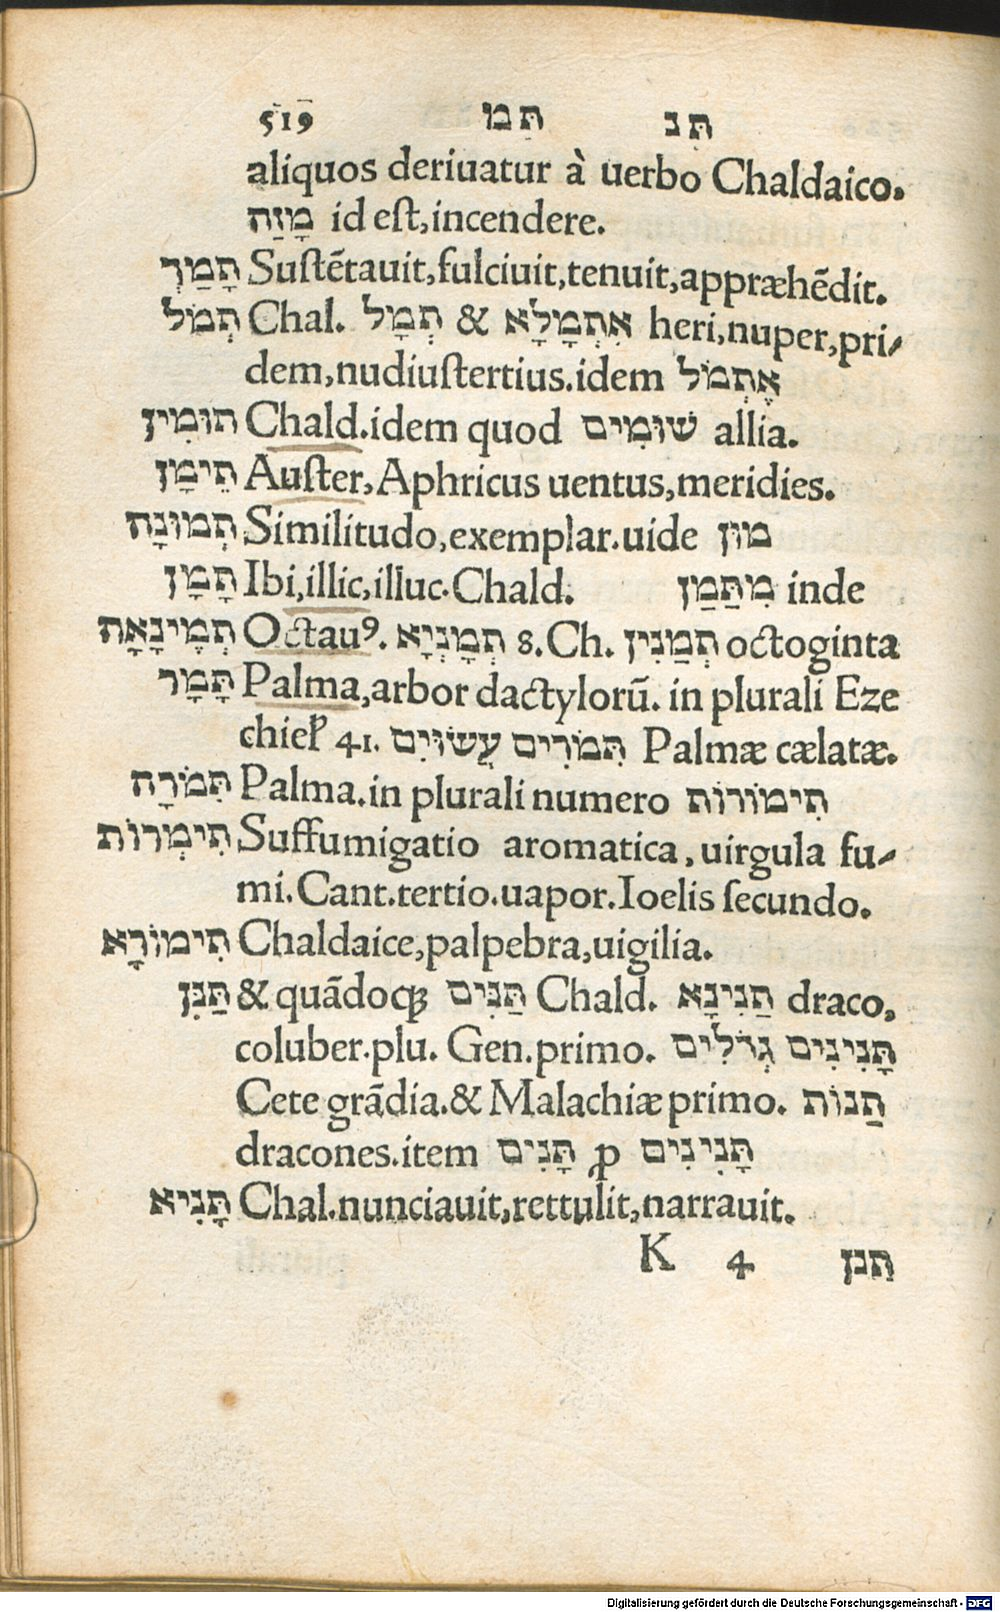 519 תִּמוּ תִּנ
aliquos deriuatur à uerbo Chaldaico.
מָזַה id eſt,incendere.
תָמַךְ Suſtētauit,fulciuit,tenuit,appræhēdit.
תְמֹל Chal. תְמָל & אִתְמָלָא heri,nuper,pri-
dem,nudiuſtertius.idem אֶתְמֹל
תוּמִין Chald.idem quod שׁוּמִים allia.
תֵימָן Auſter,Aphricus uentus,meridies.
תְמוּנָה Similitudo,exemplar.uide מוּן
תָמָן Ibi,illic,illuc.Chald. מִתַּמַן inde
תְמִינָאָה Octauꝰ. תְמָנְיָא 8.Ch. תְמַנִין octoginta
תָּמָר Palma,arbor dactylorū. in plurali Eze
chieł 41. תִּמֹרִים עֲשׂוּיִם Palmæ cælatæ.
תִּמֹרָה Palma.in plurali numero תִימוֹרוֹת
תִימְרוֹת Suffumigatio aromatica,uirgula fu-
mi.Cant.tertio.uapor.Ioelis ſecundo.
תִימוֹרָא Chaldaice,palpebra,uigilia.
תַּנִּן & quādoqꝫ תַּנִּים Chald. תַנִינָא draco,
coluber.plu. Gen.primo. תָּנִינִים גְדֹלִים
Cete grādia.& Malachiæ primo. תַנוֹת
dracones.item תָּנִים ꝓ תָּנִינִים
תָּנִיא Chal.nunciauit,rettulit,narrauit.
K 4 תַּנן
Digitalisierung gefördert durch die Deutsche Forschungsgemeinschaft - DFG